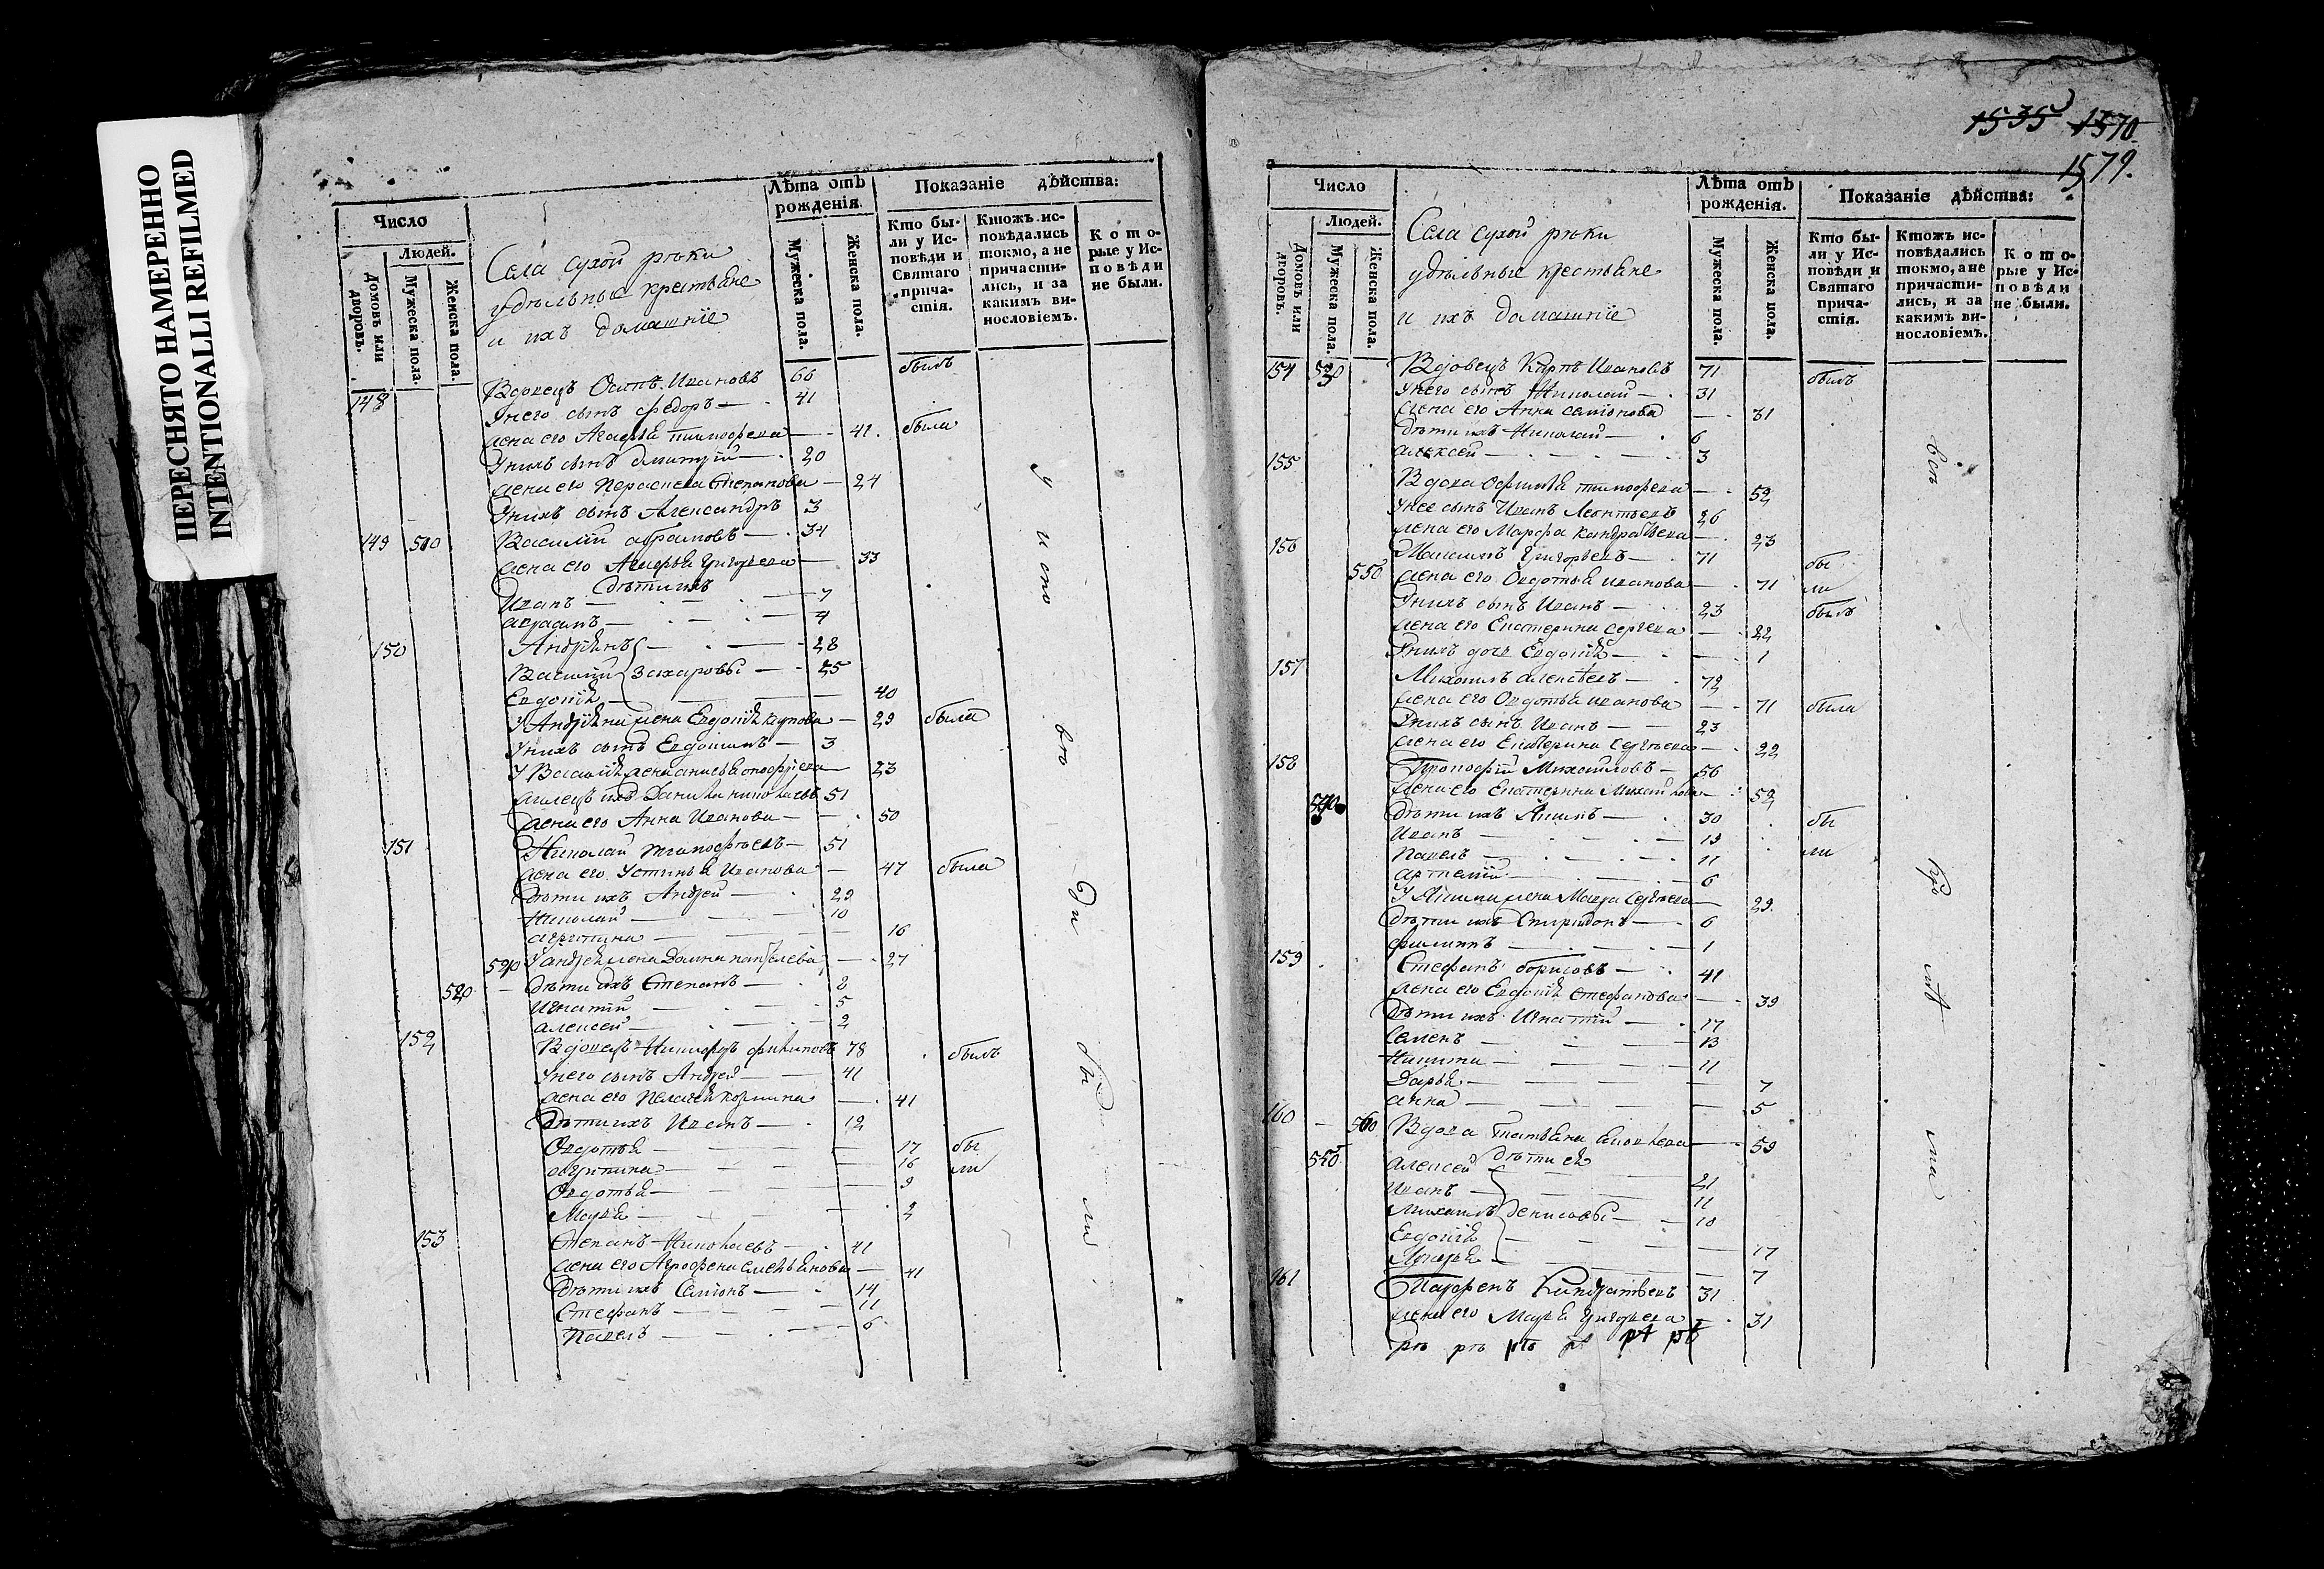 ПЕРЕСНЯТО НАМЕРЕННО
INTENTIONALLI REFILMED
Число
Людей.
Домовъ или дворовъ.
Мужеска пола.
Женска пола.
Села сухой реки
удѣльные крестьяне
и ихъ домашніе
Лѣта отъ рожденія.
Мужеска пола.
Женска пола.
Показаніе дѣйства:
Кто были у Исповѣди и Святаго причастія.
Ктожъ исповѣдались токмо, а не причастились, и за какимъ винословіемъ.
Которые у Исповѣди не были.
148 Вдовецъ Осипъ Ивановъ 66 былъ
Унего сынъ Федоръ 41
жена его Агафья тимофеева 41 была
Унихъ сынъ дмитрій 20
жена его Параскева Степанова 24
Унихъ сынъ Александръ 3
149 510 Василій абрамовъ 34
жена его Агафья григорьева 33
дѣти ихъ
Иванъ 7
авраамъ 4
150 Андріянъ 28
Василій Захаровы 25
Евдокія 40
У Андріяна жена Евдокія 29 была
Унихъ сынъ Евдокимъ 3
У Василія жена анисья 23
51
жена его Анна Иванова 50
151 Николай тимофѣевъ 51
жена его Устинья Иванова 47 была
дѣти ихъ Андрей 29
Николай 10
агрипина 16
520 У андрея жена Домна 27
520 дѣти ихъ Степанъ 8
Игнатій 5
алексей 2
152 Вдовецъ Никифоръ филиповъ 78 былъ
Унего сынъ Андрей 41
жена его Пелагея 41
Дѣти ихъ Иванъ 12
Овдотья 17 бы
агрипина 16 ли
Овдотья 9
Марья 2
153 Степанъ Николаевъ 41
жена его Агрофена 41
Дѣти ихъ Симіонъ 14
Стефанъ 11
Павелъ 6
у исповѣди были
1535 1570
1579.
Число
Людей.
Домовъ или дворовъ.
Мужеска пола.
Женска пола.
Села сухой реки
удѣльные крестьяне
и ихъ домашніе
Лѣта отъ рожденія.
Мужеска пола.
Женска пола.
Показаніе дѣйства:
Кто были у Исповѣди и Святаго причастія.
Ктожъ исповѣдались токмо, а не причастились, и за какимъ винословіемъ.
Которые у Исповѣди не были.
154 530 Вдовецъ Карпъ Ивановъ 71 былъ
Унего сынъ Николай 31
жена его Анна симіонова 31
дѣти ихъ Николай 6
алексей 3
155 Вдова Офимья тимофеева 52
Унее сынъ Иванъ Леонтьевъ 26
жена его Марфа кондратьева 23
156 Максимъ григорьевъ 71 бы
550 жена его Овдотья иванова 71 ли
Унихъ сынъ Иванъ 23 былъ
жена его Екатерина сергеева 22
Унихъ дочь Евдокія 1
157 Михаилъ алексѣевъ 72
жена его Овдотья иванова 71 была
Унихъ сынъ Иванъ 23
жена его Екатерина Сергѣева 22
158 Прокофій Михаиловъ 56
жена его Екатерина Михайлова 52
540 Дѣти ихъ Якимъ 30 бы
Иванъ 19
Павелъ 11 ли
артемій 6
У Якима жена Мавра Сергѣева 29
Дѣти ихъ Спиридонъ 6
филиппъ 1
159 Стефанъ борисовъ 41
жена его Евдокія Стефанова 39
Дѣти ихъ Игнатій 17
Семенъ 13
Никита 11
Дарья 7
анна 5
160 560 Вдова Татьяна 59
дѣти ея
550 алексей 21
Иванъ 11
Михаилъ денисовы 10
Евдокія 17
7
161 Парфенъ Кандратьевъ 31
жена его Марья григорьева 31
рт рт рт рт рт рт